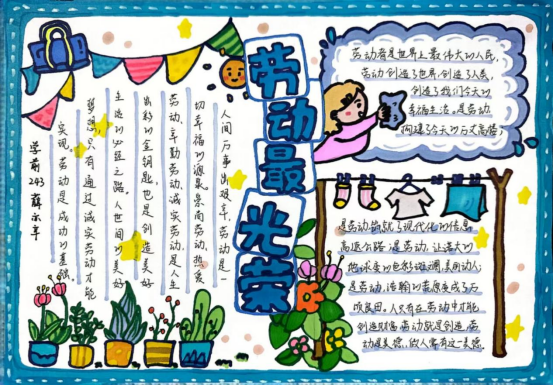 劳动最光荣
劳动者是世界上最伟大的人民,
劳动创造了世界,创造了人类,
创造了我们今天的
幸福生活,是劳动,
构建了今天的万丈高楼!
人间万事出艰辛,劳动是一
切幸福的源泉,崇尚劳动,热爱
劳动,辛勤劳动,诚实劳动是人生
出彩的金钥匙,也是创造美好
生活的必经之路。人世间的美好
梦想,只有通过诚实劳动才能
实现。劳动是成功的基础。
学前243
是劳动筑就了现代化的信息
高速公路,是劳动,让浩大的
地球变的色彩斑斓,美丽动人;
是劳动,让
顷良田。人只有在劳动中才能
创造财富,劳动就是创造,劳
动是美德,做人需有这一美德